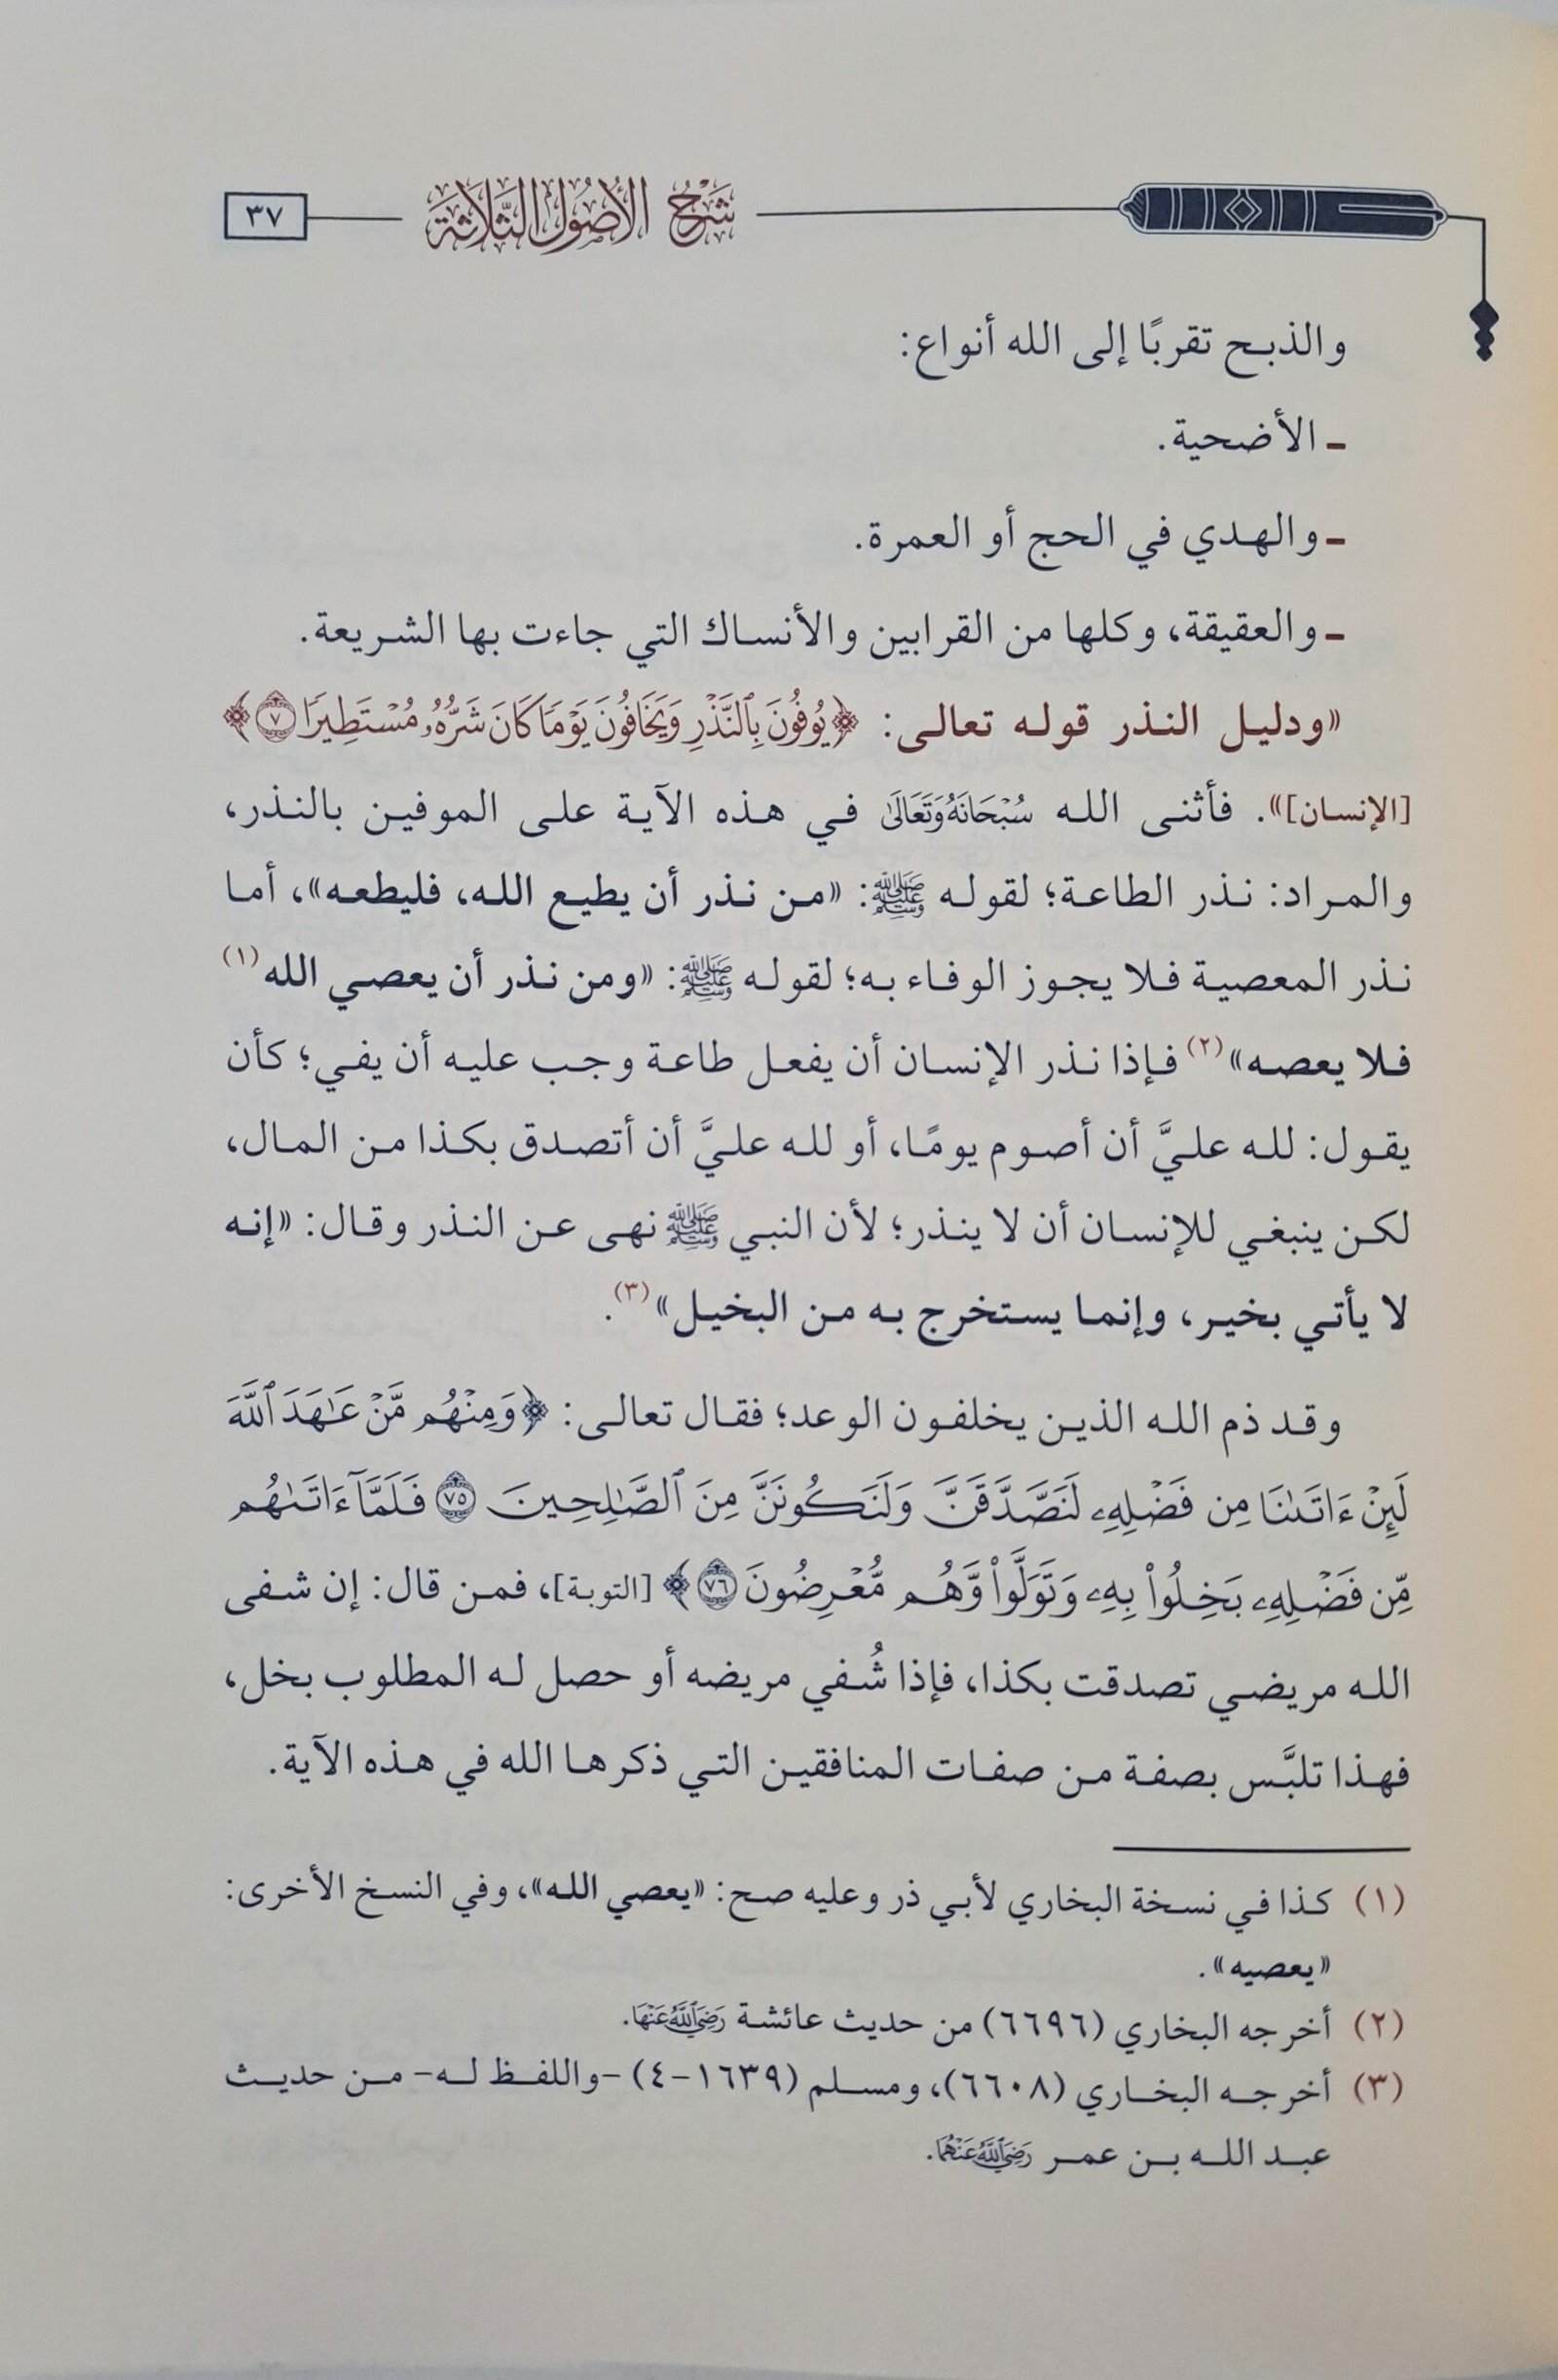 شَرْحُ الأُصُولِ الثَّلَاثَةِ
٣٧
والذبح تقربًا إلى الله أنواع:
ـ الأضحية.
ـ والهدي في الحج أو العمرة.
ـ والعقيقة، وكلها من القرابين والأنساك التي جاءت بها الشريعة.
«ودليل النذر قوله تعالى: ﴿يُوفُونَ بِٱلنَّذۡرِ وَيَخَافُونَ يَوۡمٗا كَانَ شَرُّهُۥ مُسۡتَطِيرٗا ٧﴾
[الإنسان]». فأثنى الله سُبْحَانَهُ وَتَعَالَىٰ في هذه الآية على الموفين بالنذر،
والمراد: نذر الطاعة؛ لقوله ﷺ: «من نذر أن يطيع الله، فليطعه»، أما
نذر المعصية فلا يجوز الوفاء به؛ لقوله ﷺ: «ومن نذر أن يعصي الله(١)
فلا يعصه»(٢) فإذا نذر الإنسان أن يفعل طاعة وجب عليه أن يفي؛ كأن
يقول: لله عليَّ أن أصوم يومًا، أو لله عليَّ أن أتصدق بكذا من المال،
لكن ينبغي للإنسان أن لا ينذر؛ لأن النبي ﷺ نهى عن النذر وقال: «إنه
لا يأتي بخير، وإنما يستخرج به من البخيل»(٣).
وقد ذم الله الذين يخلفون الوعد؛ فقال تعالى: ﴿وَمِنۡهُم مَّنۡ عَٰهَدَ ٱللَّهَ
لَئِنۡ ءَاتَىٰنَا مِن فَضۡلِهِۦ لَنَصَّدَّقَنَّ وَلَنَكُونَنَّ مِنَ ٱلصَّٰلِحِينَ ٧٥ فَلَمَّآ ءَاتَىٰهُم
مِّن فَضۡلِهِۦ بَخِلُواْ بِهِۦ وَتَوَلَّواْ وَّهُم مُّعۡرِضُونَ ٧٦﴾ [التوبة]، فمن قال: إن شفى
الله مريضي تصدقت بكذا، فإذا شُفي مريضه أو حصل له المطلوب بخل،
فهذا تلبَّس بصفة من صفات المنافقين التي ذكرها الله في هذه الآية.
(١) كذا في نسخة البخاري لأبي ذر وعليه صح: «يعصي الله»، وفي النسخ الأخرى:
«يعصيه».
(٢) أخرجه البخاري (٦٦٩٦) من حديث عائشة رَضِيَ ٱللَّهُ عَنْهَا.
(٣) أخرجه البخاري (٦٦٠٨)، ومسلم (١٦٣٩-٤) -واللفظ له- من حديث
عبد الله بن عمر رَضِيَ ٱللَّهُ عَنْهُمَا.